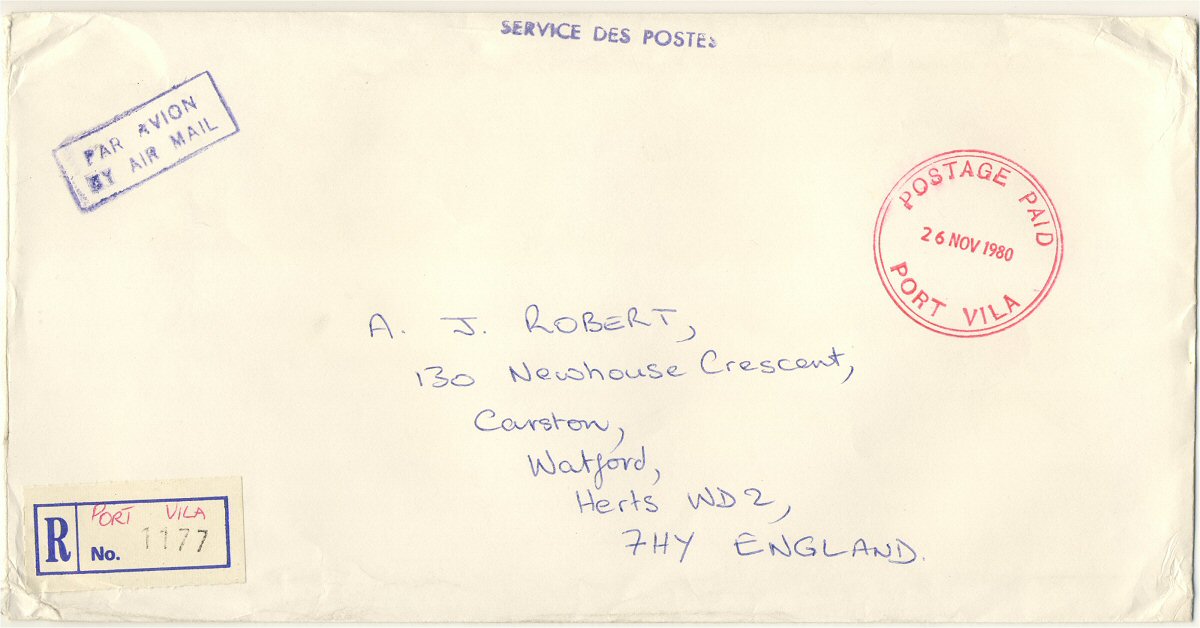 SERVICE DES POSTES
PAR AVION
BY AIR MAIL
POSTAGE PAID
26 NOV 1980
PORT VILA
A. J. ROBERT,
130 Newhouse Crescent,
Carston,
Watford,
Herts WD2,
7HY ENGLAND.
R PORT VILA
No. 1177